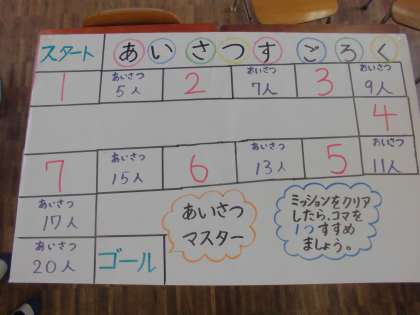 スタート
あいさつすごろく
1
あいさつ
5人
2
あいさつ
7人
3
あいさつ
9人
4
あいさつ
11人
5
あいさつ
13人
6
あいさつ
15人
7
あいさつ
17人
あいさつ
20人
ゴール
あいさつ
マスター
ミッションをクリア
したら、コマを
1つすすめ
ましょう。